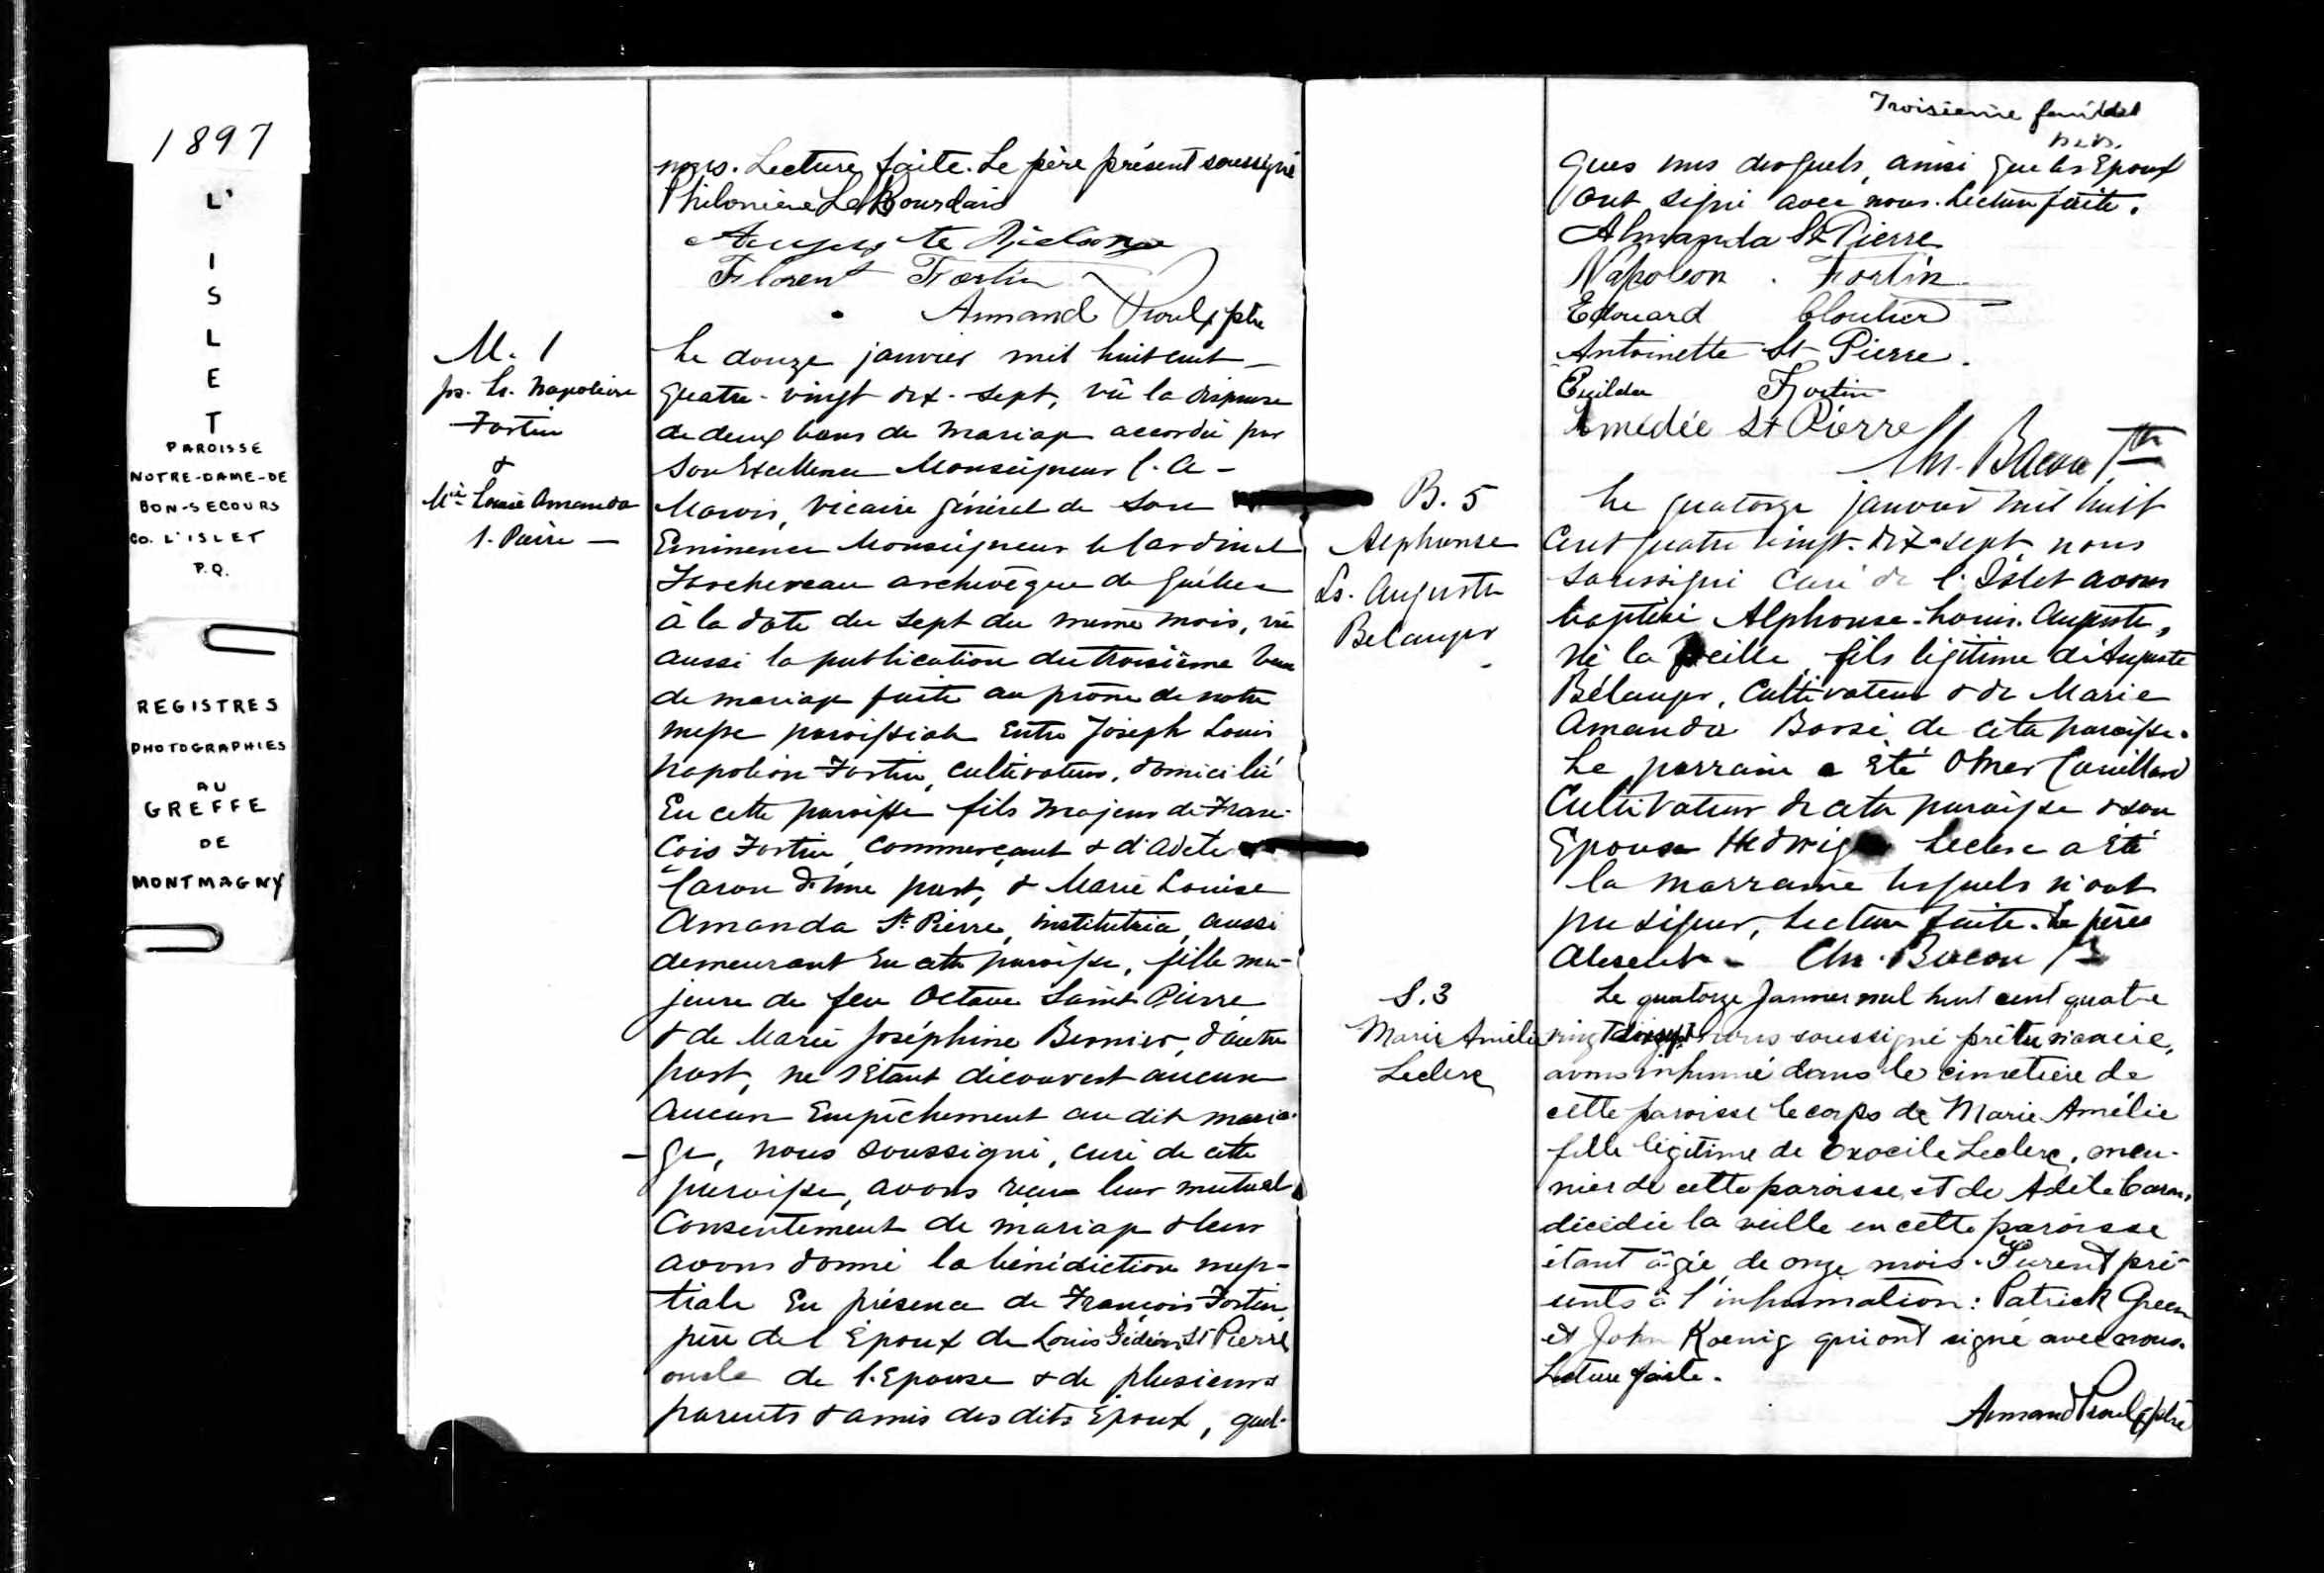 1897
L'
I
S
L
E
T
PAROISSE
NOTRE-DAME-DE
BON-SECOURS
CO. L'ISLET
P.Q.
REGISTRES
PHOTOGRAPHIES
AU
GREFFE
DE
MONTMAGNY
nous. Lecture faite. Le père présent soussigné
Philomène LeBourdais
Auguste
Florent Fortin
Armand Proulx ptre
M. 1
Js. Ls. Napoléon
Fortin
&
Mie Louise Amanda
S. Pierre —
Le douze janvier mil huit cent —
quatre-vingt dix-sept, vû la dispense
de deux bans de mariage accordée par
Son Excellence Monseigneur C. A -
Marois, vicaire général de Son
Eminence Monseigneur le Cardinal
Taschereau archevêque de Québec
à la date du sept du même mois, vû
aussi la publication du troisième ban
de mariage faite au prône de notre
messe paroissiale entre Joseph Louis
Napoléon Fortin, cultivateur, domicilié
en cette paroisse fils majeur de Fran-
çois Fortin, commerçant & d'Adèle
Caron d'une part, & Marie Louise
Amanda St. Pierre, institutrice, aussi
demeurant en cette paroisse, fille ma-
jeure de feu Octave Saint Pierre
& de Marie Joséphine Bernier, d'autre
part, ne s'étant découvert aucun
aucun empêchement au dit maria-
ge, nous soussigné, curé de cette
paroisse, avons reçu leur mutuel
consentement de mariage & leur
avons donné la bénédiction nup-
tiale en présence de François Fortin
père de l'époux de Louis Gédéon St Pierre
oncle de l'Epouse & de plusieurs
parents & amis des dits époux, quel-
Troisième feuillet
ques uns desquels, ainsi que les Epoux
ont signé avec nous. Lecture faite.
Almanda St Pierre
Napoléon . Fortin
Edouard Cloutier
Antoinette St Pierre.
Fortin
Amédée St Pierre
Ch. Bacon Ptre
B. 5
Alphonse
Ls. Auguste
Belanger
Le quatorze janvier mil huit
cent quatre vingt-dix-sept, nous
soussigné curé de l'Islet avons
baptisé Alphonse-Louis-Auguste,
né la veille, fils légitime d'Auguste
Bélanger, cultivateur & de Marie
Amanda Bossé de cette paroisse.
Le parrain a été Omer Couillard
cultivateur de cette paroisse & son
Epouse Hedwige Leclerc a été
la marraine lesquels n'ont
pu signer, Lecture faite. Le père
absent - Ch. Bacon Ptre
S. 3
Marie Amélie
Leclerc
Le quatorze Janvier mil huit cent quatre
vingt dix sept nous soussigné prêtre vicaire,
avons inhumé dans le cimetière de
cette paroisse le corps de Marie Amélie
fille légitime de Exocile Leclerc, meu-
nier de cette paroisse, et de Adèle Caron,
décédée la veille en cette paroisse
étant âgée de onze mois. Furent pré-
sents à l'inhumation: Patrick Green
et John Koenig qui ont signé avec nous.
Lecture faite.
Armand Proulx ptre